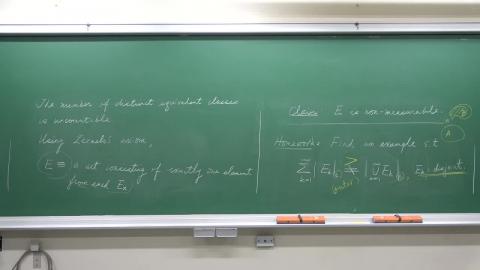 The number of distinct equivalent classes
is uncountable.
Using Zermelo's axiom,
E ≡ a set consisting of exactly one element
from each Ex
Claim E is non-measurable.
A
Homework: Find an example s.t
∞ ∑ k=1 |Ek|e > ≠ |∞ ∪ k=1 Ek|e, Ek: disjoint.